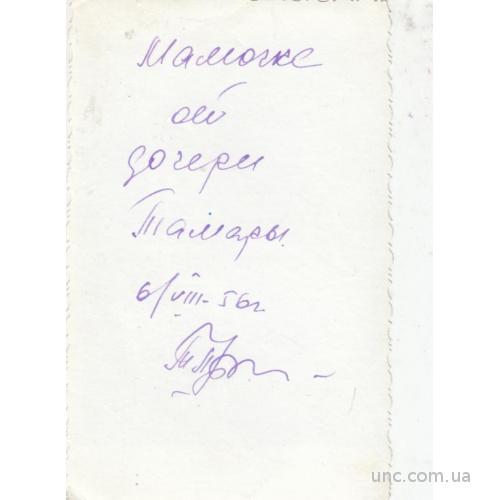 Мамочке
от
дочери
Тамары.
6/VIII-56г.
unc.com.ua